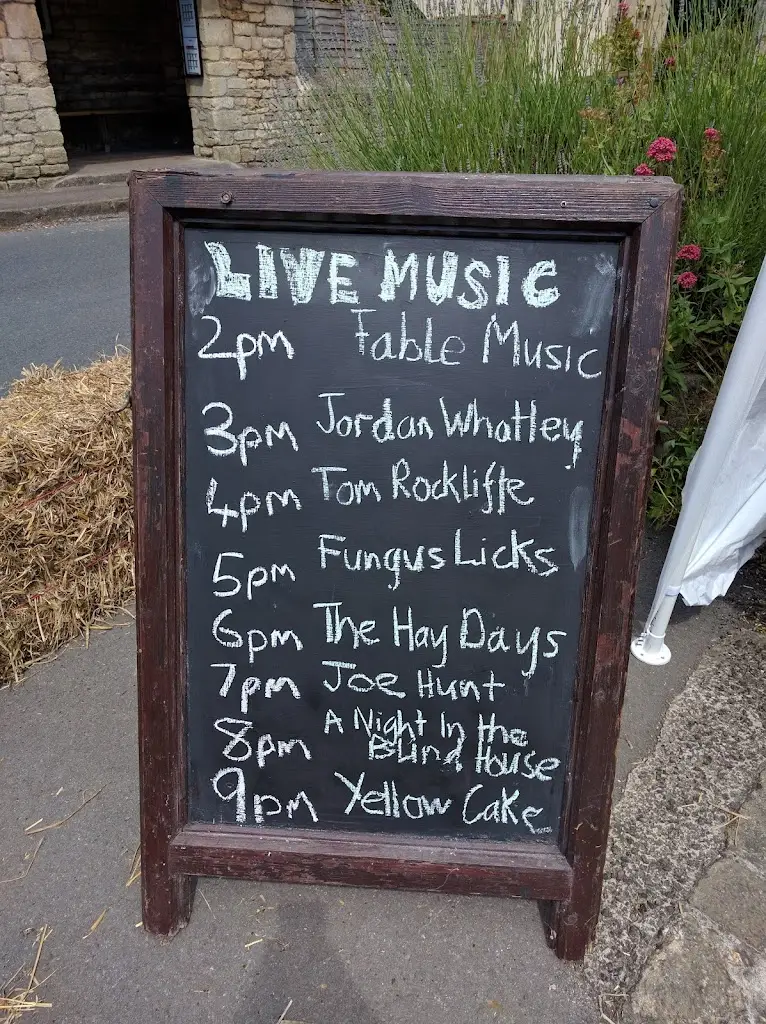 LIVE MUSIC
2pm Fable Music
3pm Jordan Whatley
4pm Tom Rockliffe
5pm Fungus Licks
6pm The Hay Days
7pm Joe Hunt
8pm A Night In the
Blind House
9pm Yellow Cake